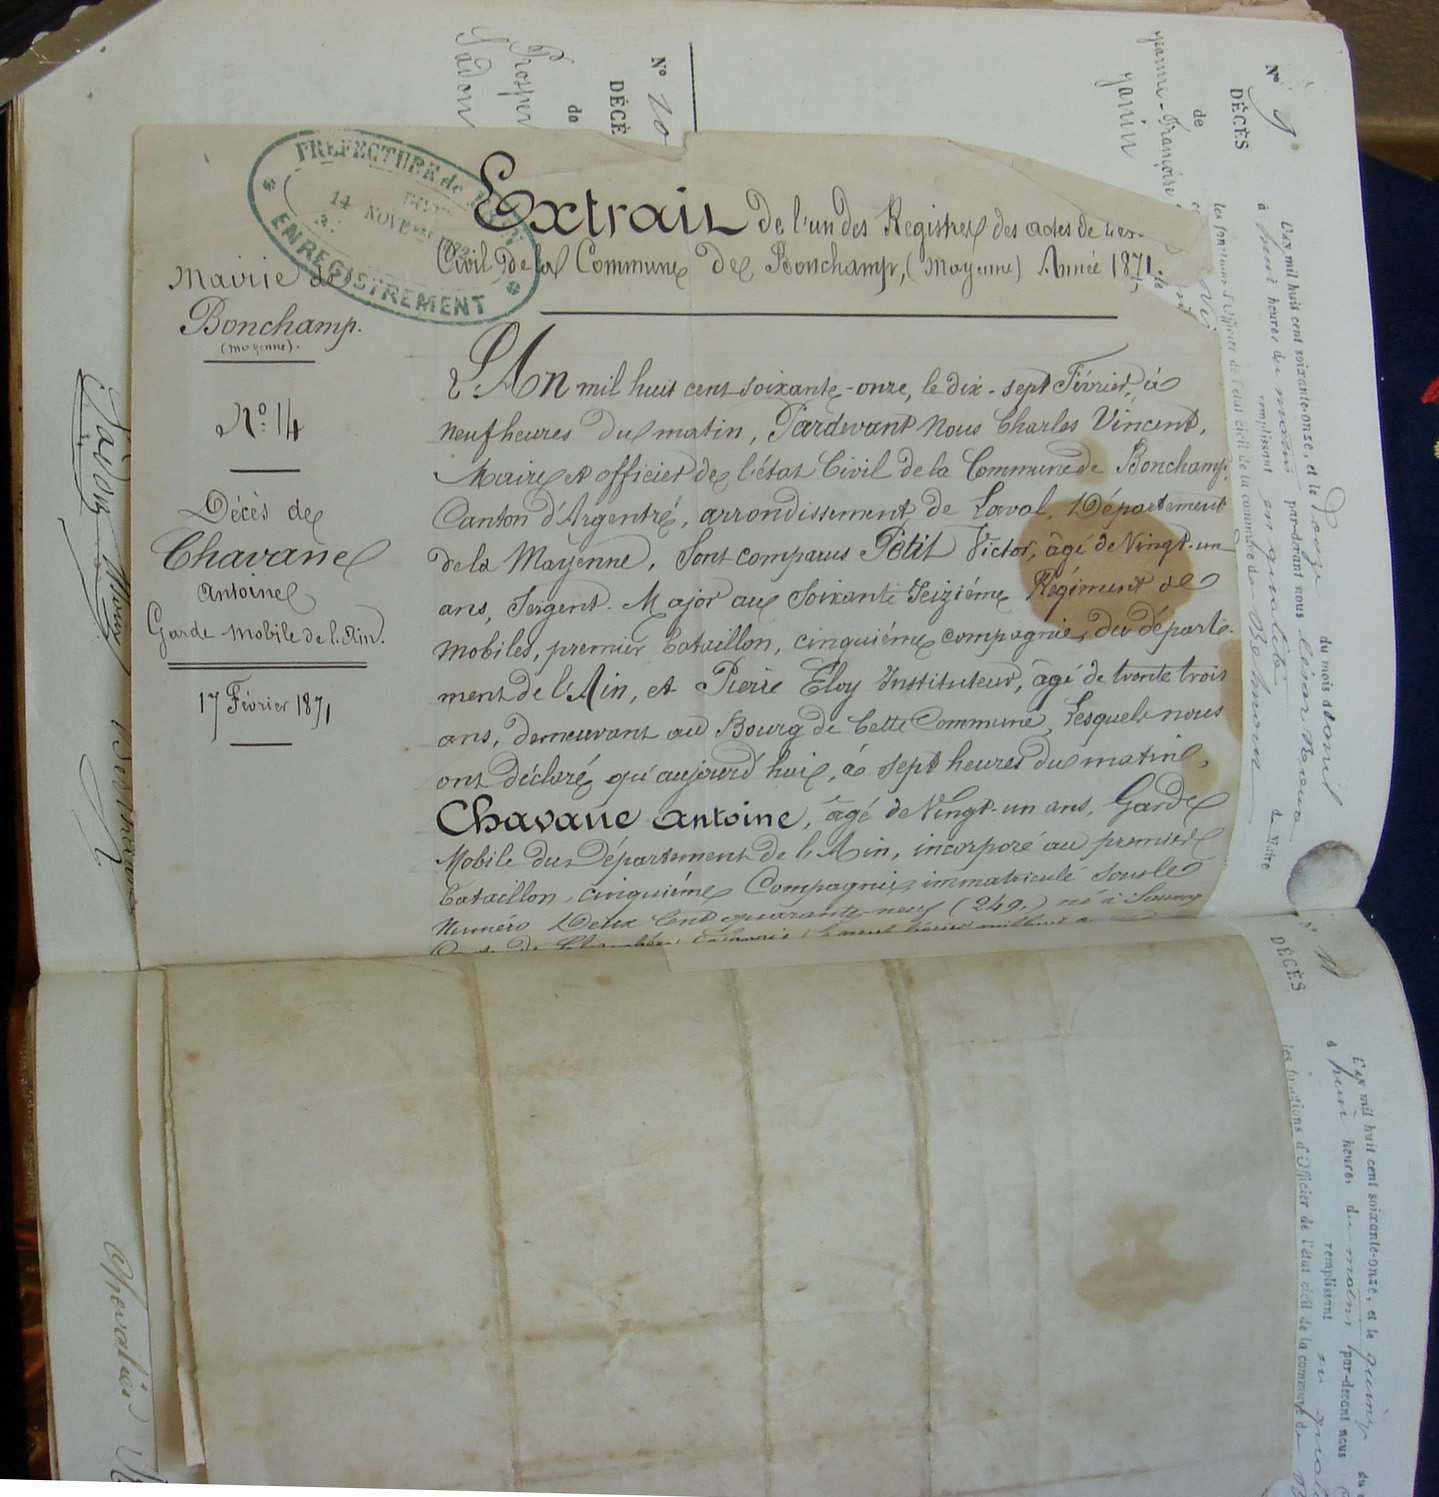 N° 20
DÉCÈ
de
Prosper
Sadon
N° 9
DÉCÈS
de
Jeanne-Françoise
Janin
PRÉFECTURE de
14 NOVEM
ENREGISTREMENT
Extrait de l'un des Registres des actes de
Civil de la Commune de Bonchamp, (Mayenne) Année 1871.
Mairie de
Bonchamp.
(Mayenne).
N° 14
Décès de
Chavane
Antoine
Garde Mobile de l'Ain.
17 Février 1871
L'An mil huit cent soixante-onze, le dix-sept Février, à
neuf heures du matin, Pardevant Nous Charles Vincent,
Maire et officier de l'état Civil de la Commune de Bonchamp,
Canton d'Argentré, arrondissement de Laval, Département
de la Mayenne, Sont comparus Petit Victor, âgé de Vingt-un
ans, Sergent-Major au Soixante Seizième Régiment de
Mobiles, premier bataillon, cinquième compagnie, du départe-
ment de l'Ain, et Pierre Eloy Instituteur, âgé de trente trois
ans, demeurant au Bourg de Cette Commune, Lesquels nous
ont déclaré qu'aujourd'hui, à sept heures du matin,
Chavane Antoine, âgé de Vingt-un ans, Garde
Mobile du Département de l'Ain, incorporé au premier
bataillon, cinquième Compagnie, immatriculé sous le
Numéro Deux Cent quarante-neuf (249.) né à
L'an mil huit cent soixante-onze, et le douze du mois d'avril
à heures du matin par-devant nous
remplissant en qualité de Maire
les fonctions d'Officier de l'état civil de la commune de
N° 11
DÉCÈS
L'an mil huit cent soixante-onze, et le quinze du
à heures du matin par-devant nous
remplissant en
les fonctions d'Officier de l'état civil de la commune de
Chevalier